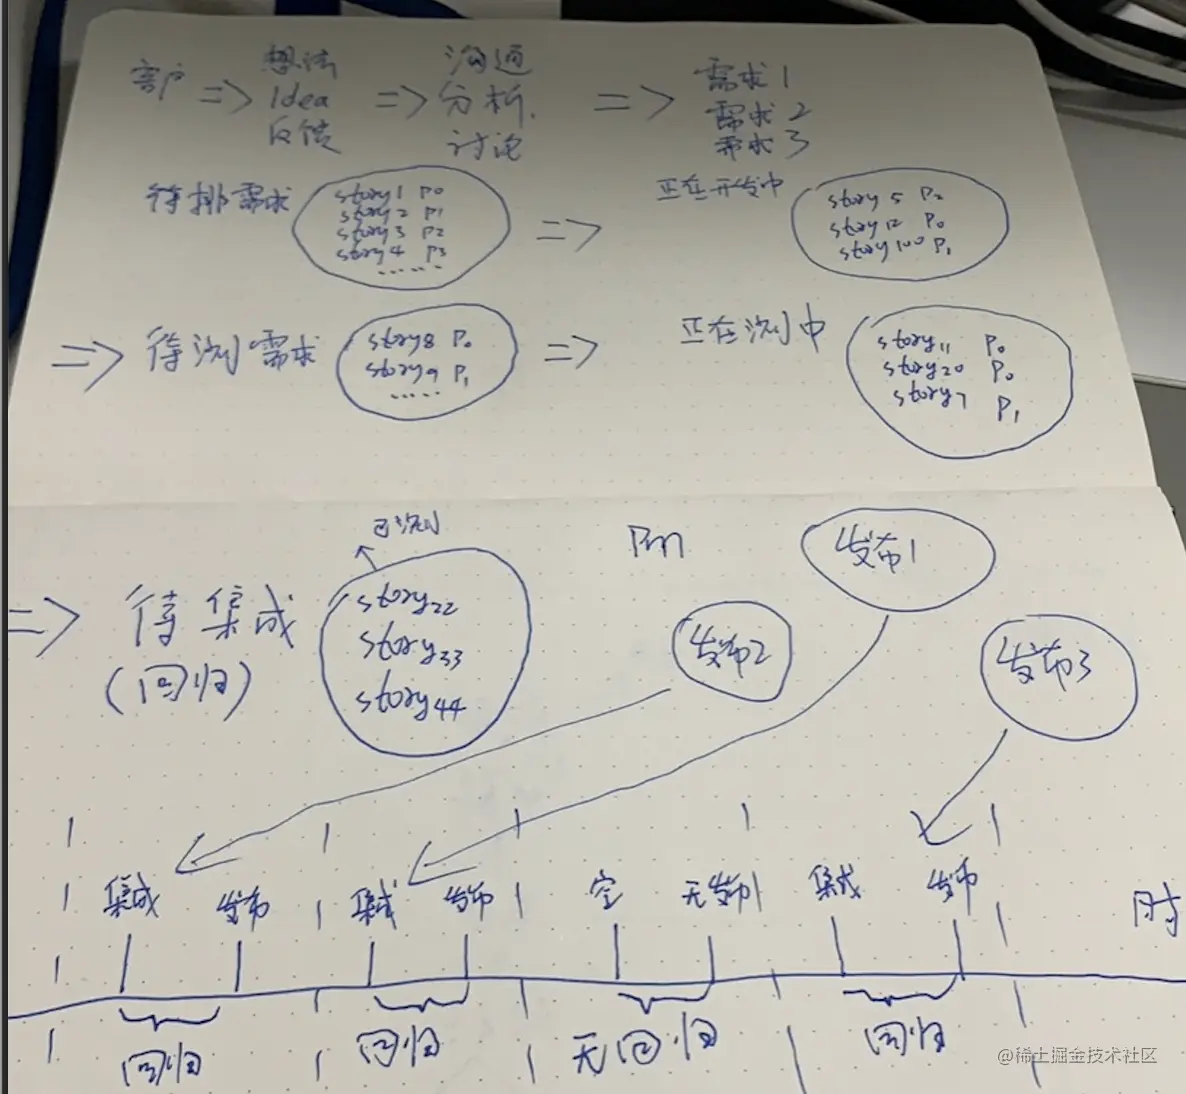 客户 => 想法 Idea 反馈 => 沟通 分析. 讨论 => 需求1 需求2 需求3
待排需求
story1 P0
story2 P1
story3 P2
story4 P3
......
=>
正在开发中
story5 P2
story12 P0
story100 P1
=> 待测需求
story8 P0
story9 P1
.....
=>
正在测中
story11 P0
story20 P0
story7 P1
=> 待集成
(回归)
已测
story22
story33
story44
发布1
发布2
发布3
集成 发布 集成 发布 空 无发布 集成 发布 时
回归 回归 无回归 回归
@稀土掘金技术社区